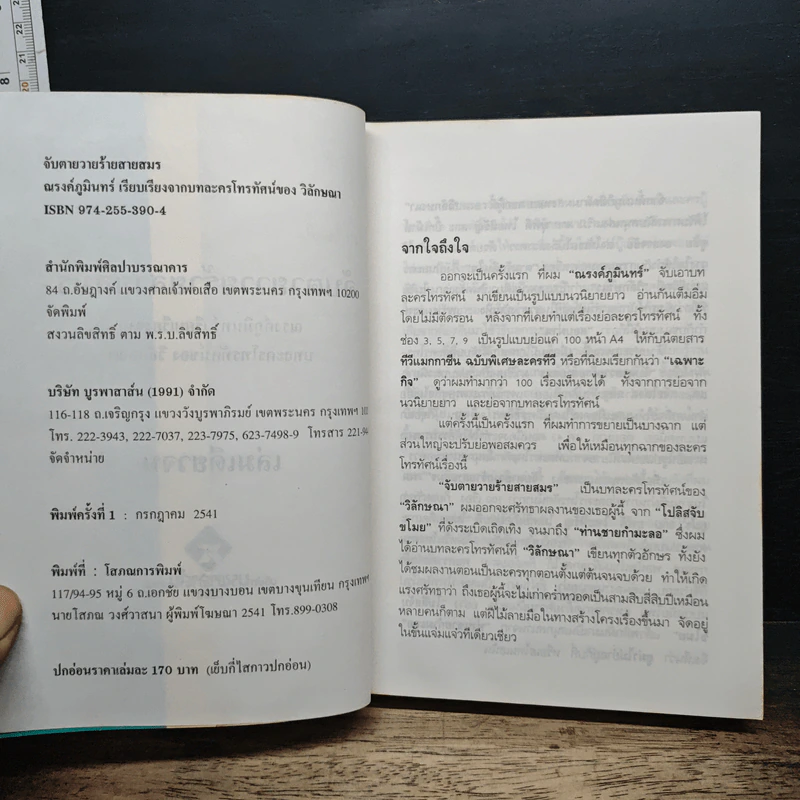 จับตายวายร้ายสายสมร
ณรงค์ภูมินทร์ เรียบเรียงจากบทละครโทรทัศน์ของ วิลักษณา
ISBN 974-255-390-4
สำนักพิมพ์ศิลปาบรรณาคาร
84 ถ.อัษฎางค์ แขวงศาลเจ้าพ่อเสือ เขตพระนคร กรุงเทพฯ 10200
จัดพิมพ์
สงวนลิขสิทธิ์ ตาม พ.ร.บ.ลิขสิทธิ์
บริษัท บูรพาสาส์น (1991) จำกัด
116-118 ถ.เจริญกรุง แขวงวังบูรพาภิรมย์ เขตพระนคร กรุงเทพฯ
โทร. 222-3943, 222-7037, 223-7975, 623-7498-9 โทรสาร
จัดจำหน่าย
พิมพ์ครั้งที่ 1 : กรกฎาคม 2541
พิมพ์ที่ : โสภณการพิมพ์
117/94-95 หมู่ 6 ถ.เอกชัย แขวงบางบอน เขตบางขุนเทียน กรุงเทพฯ
นายโสภณ วงศ์วาสนา ผู้พิมพ์โฆษณา 2541 โทร.899-0308
ปกอ่อนราคาเล่มละ 170 บาท (เย็บกี่ไสกาวปกอ่อน)
จากใจถึงใจ
ออกจะเป็นครั้งแรก ที่ผม "ณรงค์ภูมินทร์" จับเอาบท
ละครโทรทัศน์ มาเขียนเป็นรูปแบบนวนิยายยาว อ่านกันเต็มอิ่ม
โดยไม่มีตัดรอน หลังจากที่เคยทำแต่เรื่องย่อละครโทรทัศน์ ทั้ง
ช่อง 3, 5, 7, 9 เป็นรูปแบบย่อแค่ 100 หน้า A4 ให้กับนิตยสาร
ทีวีแมกกาซีน ฉบับพิเศษละครทีวี หรือที่นิยมเรียกกันว่า "เฉพาะ
กิจ" ดูว่าผมทำมากว่า 100 เรื่องเห็นจะได้ ทั้งจากการย่อจาก
นวนิยายยาว และย่อจากบทละครโทรทัศน์
แต่ครั้งนี้เป็นครั้งแรก ที่ผมทำการขยายเป็นบางฉาก แต่
ส่วนใหญ่จะปรับย่อพอสมควร เพื่อให้เหมือนทุกฉากของละคร
โทรทัศน์เรื่องนี้
"จับตายวายร้ายสายสมร" เป็นบทละครโทรทัศน์ของ
"วิลักษณา" ผมออกจะศรัทธาผลงานของเธอผู้นี้ จาก "โปลิสจับ
ขโมย" ที่ดังระเบิดเถิดเทิง จนมาถึง "ท่านชายกำมะลอ" ซึ่งผม
ได้อ่านบทละครโทรทัศน์ที่ "วิลักษณา" เขียนทุกตัวอักษร ทั้งยัง
ได้ชมผลงานตอนเป็นละครทุกตอนตั้งแต่ต้นจนจบด้วย ทำให้เกิด
แรงศรัทธาว่า ถึงเธอผู้นี้จะไม่เก่าคร่ำหวอดเป็นสามสิบสี่สิบปีเหมือน
หลายคนก็ตาม แต่ฝีไม้ลายมือในทางสร้างโครงเรื่องขึ้นมา จัดอยู่
ในขั้นแจ่มแจ๋วทีเดียวเชียว